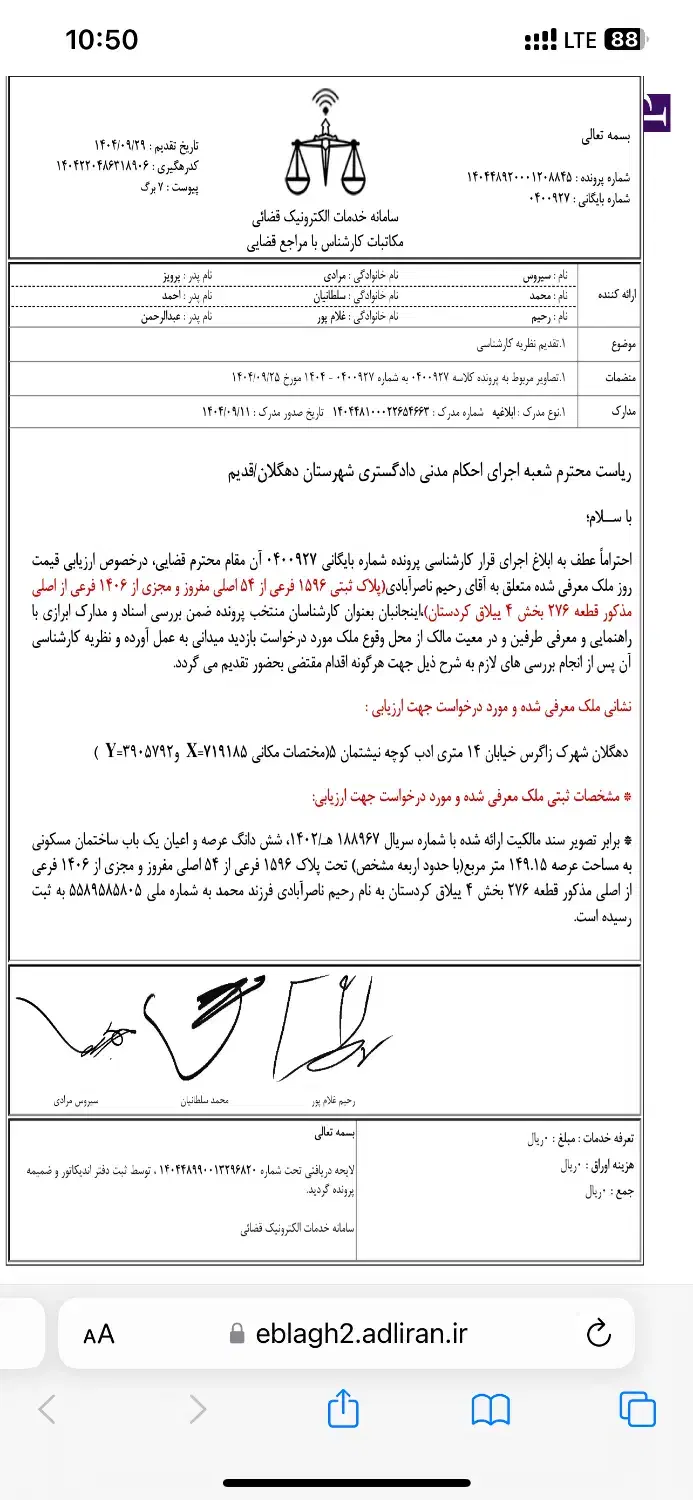 10:50
LTE 88
بسمه تعالی
شماره پرونده : ۱۴۰۴۴۸۹۲۰۰۰۱۲۰۸۸۴۵
شماره بایگانی : ۰۴۰۰۹۲۷
سامانه خدمات الکترونیک قضائی
مکاتبات کارشناس با مراجع قضایی
تاریخ تقدیم : ۱۴۰۴/۰۹/۲۹
کدرهگیری : ۱۴۰۴۲۲۰۴۸۶۳۱۸۹۰۶
پیوست : ۷ برگ
ارائه کننده
نام : سیروس نام خانوادگی : مرادی نام پدر : پرویز
نام : محمد نام خانوادگی : سلطانیان نام پدر : احمد
نام : رحیم نام خانوادگی : غلام پور نام پدر : عبدالرحمن
موضوع ۱.تقدیم نظریه کارشناسی
منضمات ۱.تصاویر مربوط به پرونده کلاسه ۰۴۰۰۹۲۷ به شماره ۰۴۰۰۹۲۷ - ۱۴۰۴ مورخ ۱۴۰۴/۰۹/۲۵
مدارک ۱.نوع مدرک : ابلاغیه شماره مدرک : ۱۴۰۴۴۸۱۰۰۰۲۲۶۵۴۶۶۳ تاریخ صدور مدرک : ۱۴۰۴/۰۹/۱۱
ریاست محترم شعبه اجرای احکام مدنی دادگستری شهرستان دهگلان/قدیم
با ســلام؛
احتراماً عطف به ابلاغ اجرای قرار کارشناسی پرونده شماره بایگانی ۰۴۰۰۹۲۷ آن مقام محترم قضایی، درخصوص ارزیابی قیمت
روز ملک معرفی شده متعلق به آقای رحیم ناصرآبادی(پلاک ثبتی ۱۵۹۶ فرعی از ۵۴ اصلی مفروز و مجزی از ۱۴۰۶ فرعی از اصلی
مذکور قطعه ۲۷۶ بخش ۴ ییلاق کردستان)،اینجانبان بعنوان کارشناسان منتخب پرونده ضمن بررسی اسناد و مدارک ابرازی با
راهنمایی و معرفی طرفین و در معیت مالک از محل وقوع ملک مورد درخواست بازدید میدانی به عمل آورده و نظریه کارشناسی
آن پس از انجام بررسی های لازم به شرح ذیل جهت هرگونه اقدام مقتضی بحضور تقدیم می گردد.
نشانی ملک معرفی شده و مورد درخواست جهت ارزیابی :
دهگلان شهرک زاگرس خیابان ۱۴ متری ادب کوچه نیشتمان ۵(مختصات مکانی X=۷۱۹۱۸۵ وY=۳۹۰۵۷۹۲ )
* مشخصات ثبتی ملک معرفی شده و مورد درخواست جهت ارزیابی:
* برابر تصویر سند مالکیت ارائه شده با شماره سریال ۱۸۸۹۶۷ هـ/۱۴۰۲، شش دانگ عرصه و اعیان یک باب ساختمان مسکونی
به مساحت عرصه ۱۴۹.۱۵ متر مربع(با حدود اربعه مشخص) تحت پلاک ۱۵۹۶ فرعی از ۵۴ اصلی مفروز و مجزی از ۱۴۰۶ فرعی
از اصلی مذکور قطعه ۲۷۶ بخش ۴ ییلاق کردستان به نام رحیم ناصرآبادی فرزند محمد به شماره ملی ۵۵۸۹۵۸۵۸۰۵ به ثبت
رسیده است.
رحیم غلام پور محمد سلطانیان سیروس مرادی
تعرفه خدمات : مبلغ : ۰ریال
هزینه اوراق : ۰ریال
جمع : ۰ریال
بسمه تعالی
لایحه دریافتی تحت شماره ۱۴۰۴۴۸۹۹۰۰۱۳۲۹۶۸۲۰ ، توسط ثبت دفتر اندیکاتور و ضمیمه
پرونده گردید.
سامانه خدمات الکترونیک قضائی
AA eblagh2.adliran.ir